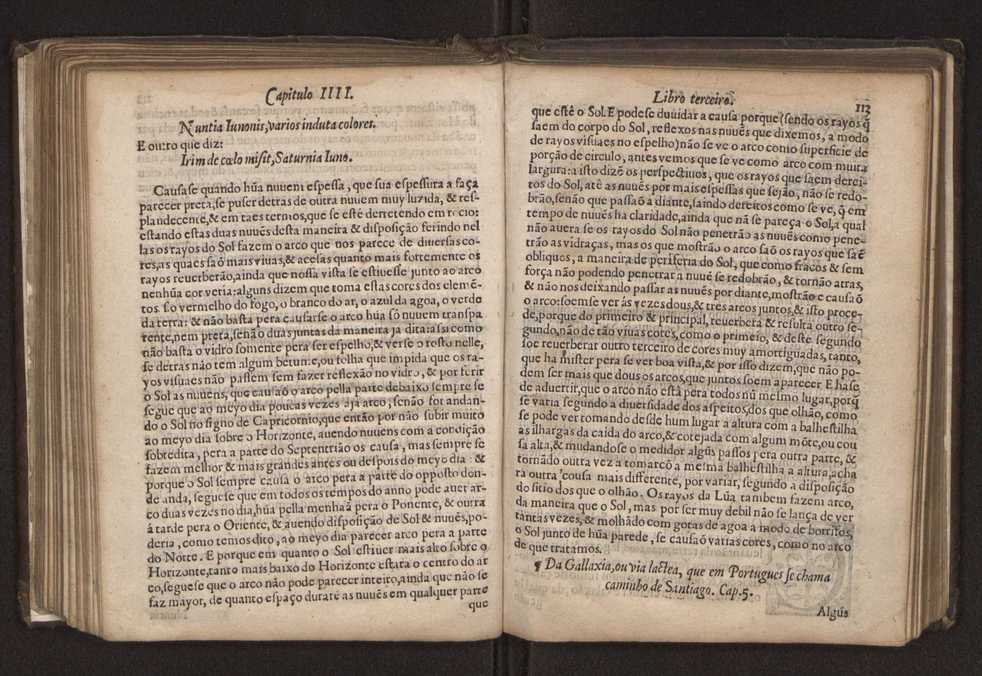 Capitulo IIII.
Nuntia Iunonis, varios induta colores.
E outro que diz:
Irim de cœlo misit, Saturnia Iuno.
Causase quando hũa nuuem espessa, que sua espessura a faça
parecer preta, se puser detras de outra nuuem muy luzida, & res-
plandecente, & em taes termos, que se estê derretendo em rocio:
estando estas duas nuuẽs desta maneira & disposição ferindo nel
las os rayos do Sol fazem o arco que nos parece de diuersas co-
res, as quaes saõ mais viuas, & acesas quanto mais fortemente os
rayos reuerberão, ainda que nossa vista se estiuesse junto ao arco
nenhũa cor veria: alguns dizem que toma estas cores dos elemẽ-
tos. Lo vermelho do fogo, o branco do ar, o azul da agoa, o verde
da terra: & não basta pera causarse o arco hũa sô nuuem transpa
rente, nem preta, senão duas juntas da maneira ja dita: assi como
não basta o vidro somente pera ser espelho, & verse o rosto nelle,
se detras não tem algum betume, ou folha que impida que os ra-
yos visuaes não passem sem fazer reflexão no vidro, & por ferir
o Sol as nuuens, que causaõ o arco pella parte debaixo sempre se
segue que ao meyo dia poucas vezes aja arco, senão for andan-
do o Sol no signo de Capricornio, que então por não subir muito
ao meyo dia sobre o Horizonte, auendo nuuens com a condição
sobredita, pera a parte do Septentrião os causa, mas sempre se
fazem melhor & mais grandes antes ou despois do meyo dia: &
porque o Sol sempre causa o arco pera a parte do opposto don-
de anda, seguese que em todos os tempos do anno pode auer ar-
co duas vezes no dia, hũa pella menhaã pera o Ponente, & outra
â tarde pera o Oriente, & auendo disposição de Sol & nuuẽs, po-
deria, como temos dito, ao meyo dia parecer arco pera a parte
do Norte. E porque em quanto o Sol estiuer mais alto sobre o
Horizonte, tanto mais baixo do Horizonte estarà o centro do ar
co, seguese que o arco não pode parecer inteiro, ainda que não se
faz mayor, de quanto espaço durarẽ as nuuẽs em qualquer parte
que
Libro terceiro.
113
que estê o Sol. E podese duuidar a causa porque (sendo os rayos q̃
saem do corpo do Sol, reflexos nas nuuẽs que dixemos, a modo
de rayos visuaes no espelho) não se ve o arco como superficie de
porção de circulo, antes vemos que se ve como arco com muita
largura: a isto dizẽ os perspectiuos, que os rayos que saem derei-
tos do Sol, atê as nuuẽs por mais espessas que sejão, não se redo-
brão, senão que passaõ a diante, saindo dereitos como se ve, q̃ em
tempo de nuuẽs ha claridade, ainda que nã se pareça o Sol, a qual
não auera se os rayos do Sol não penetrão as nuuẽs como pene-
trão as vidraças, mas os que mostrão o arco saõ os rayos que saẽ
obliquos, a maneira de periferia do Sol, que como fracos & sem
força não podendo penetrar a nuuẽ se redobrão, & tornão atras,
& não nos deixando passar as nuuẽs por diante, mostrão e causaõ
o arco: soemse ver âs vezes dous, & tres arcos juntos, & isto proce-
de, porque do primeiro & principal, reuerbera & resulta outro se-
gundo, não de tão viuas cores, como o primeiro, & deste segundo
soe reuerberar outro terceiro de cores muy amortiguadas, tanto,
que ha mister pera se ver boa vista, & por isso dizem, que não po-
dem ser mais que dous os arcos, que juntos soem aparecer. E hase
de aduertir, que o arco não està pera todos nũ mesmo lugar, porq̃
se varia segundo a diuersidade dos aspeitos, dos que olhão, como
se pode ver tomando desde hum lugar a altura com a balhestilha
as ilhargas da caida do arco, & cotejada com algum mõte, ou cou
sa alta, & mudandose o medidor algũs passos pera outra parte, &
tornãdo outra vez a tomar cõ a mesma balhestilha a altura, acha
ra outra cousa mais differente, por variar, segundo a disposição
do sitio dos que o olhão. Os rayos da Lũa tambem fazem arco,
da maneira que o Sol, mas por ser muy debil não se lança de ver
tantas vezes, & molhãdo com gotas de agoa a modo de borrifos,
o Sol junto de hũa parede, se causaõ varias cores, como no arco
de que tratamos.
¶ Da Gallaxia, ou via lactea, que em Portugues se chama
caminho de Santiago. Cap. 5.
Algũs